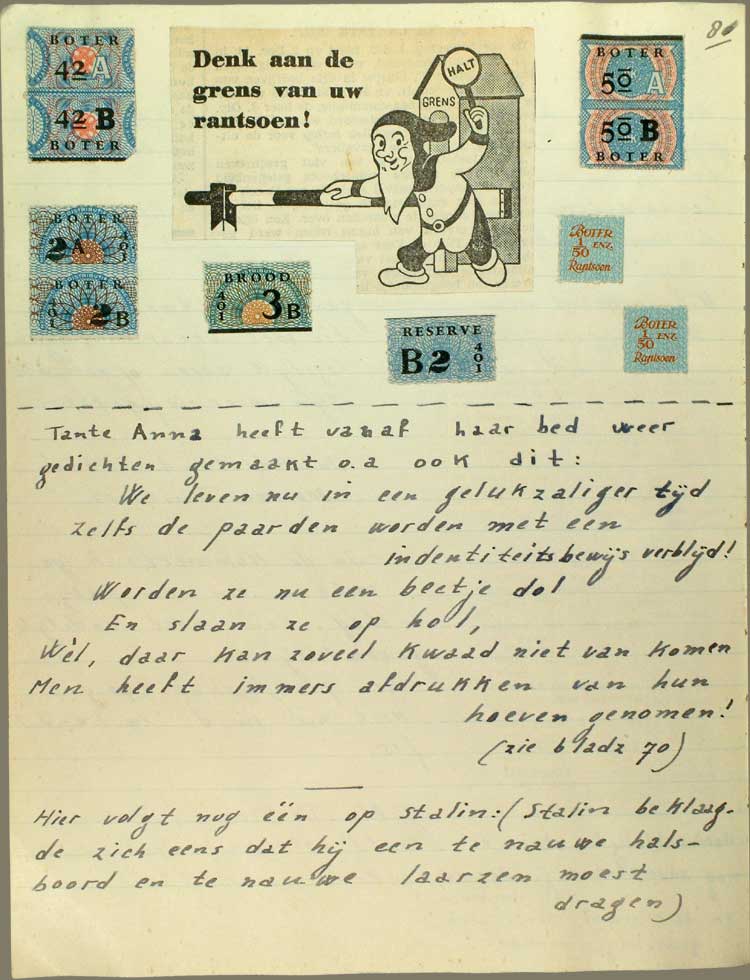 80
BOTER
42 A
42 B
BOTER
Denk aan de
grens van uw
rantsoen!
HALT
GRENS
BOTER
50 A
50 B
BOTER
BOTER
2A 401
BOTER
401 2B
BROOD
401 3B
RESERVE
B2 401
BOTER
1/50 ENZ.
Rantsoen
BOTER
1/50 ENZ.
Rantsoen
Tante Anna heeft vanaf haar bed weer
gedichten gemaakt o.a ook dit:
We leven nu in een gelukzaliger tijd
zelfs de paarden worden met een
indentiteitsbewijs verblijd!
Worden ze nu een beetje dol
En slaan ze op hol,
Wèl, daar kan zoveel kwaad niet van komen
Men heeft immers afdrukken van hun
hoeven genomen!
(zie bladz 70)
Hier volgt nog één op stalin: (Stalin beklaag-
de zich eens dat hij een te nauwe hals-
boord en te nauwe laarzen moest
dragen)